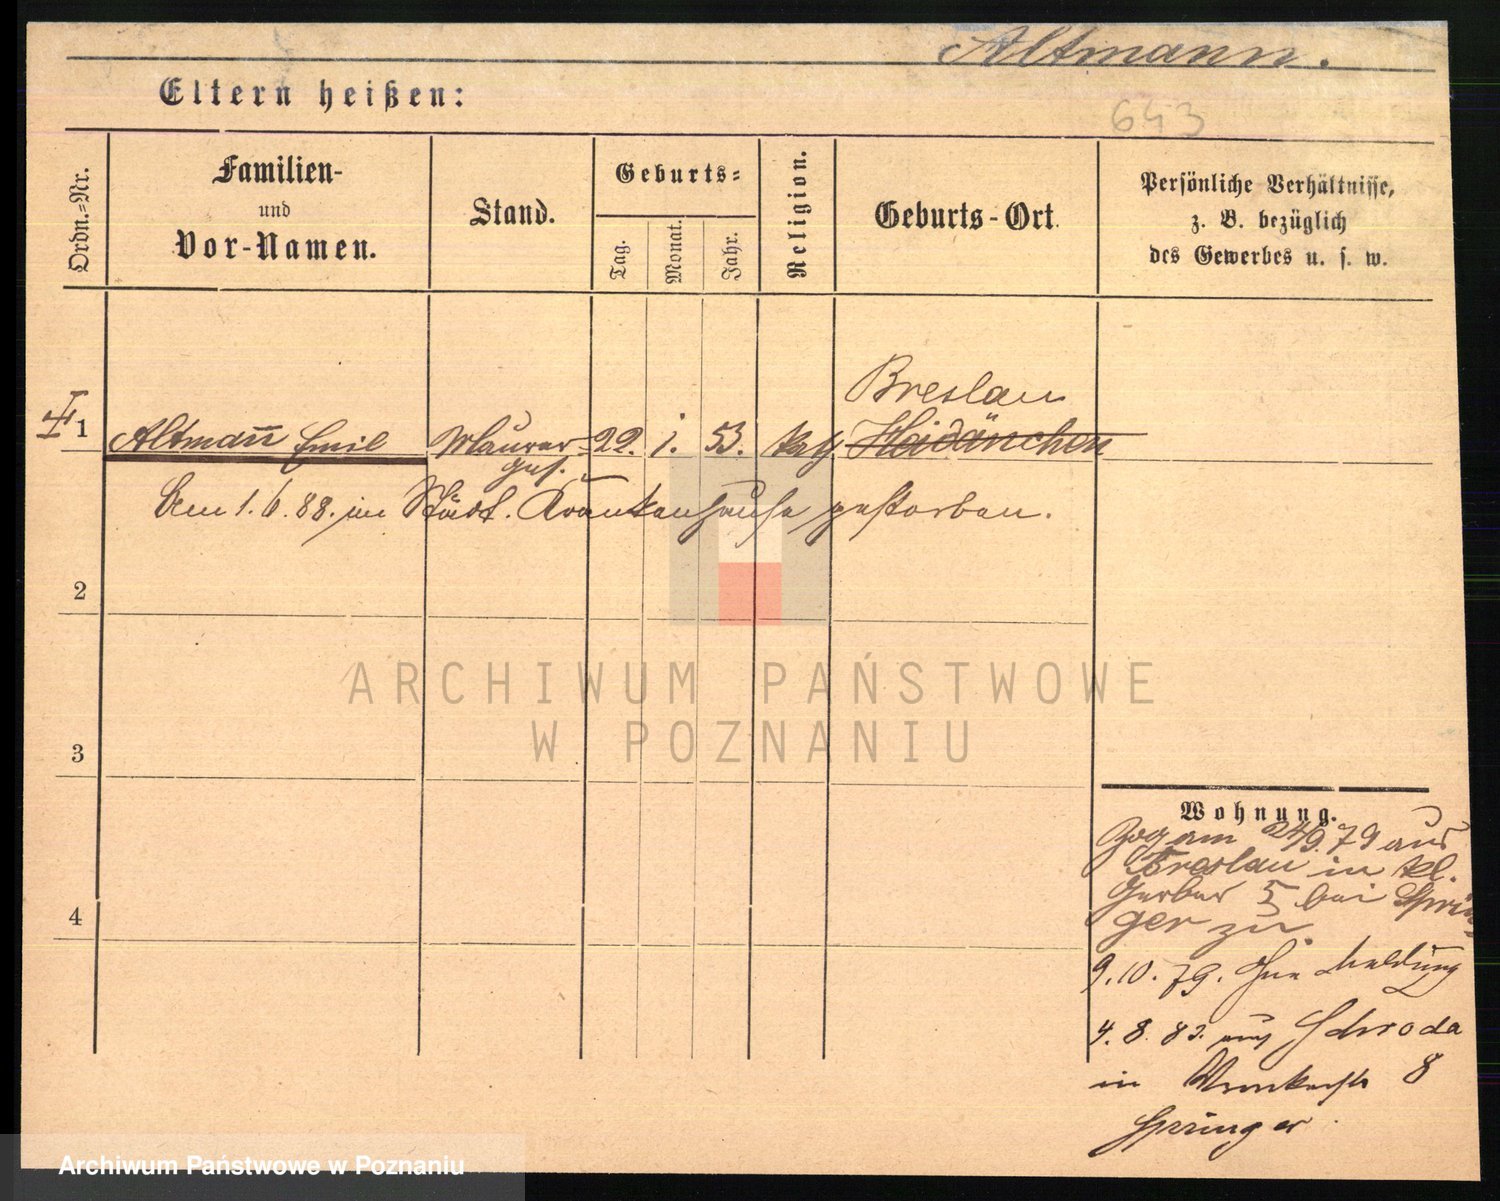 Altmann.
Eltern heißen:
643
Ordn.=Nr.
Familien-
und
Vor-Namen.
Stand.
Geburts=
Tag.
Monat.
Jahr.
Religion.
Geburts-Ort
Persönliche Verhältnisse,
z. B. bezüglich
des Gewerbes u. s. w.
Breslau
1 Altmañ Emil Maurer 22. 1. 53. kath Heidänchen
ges.
Am 1.6.88. im Städt. Krankenhause gestorben.
2
3
4
ARCHIWUM PAŃSTWOWE
W POZNANIU
Wohnung.
Zog am 24/9.79 aus
Breslau in kl.
Gerber 5 bei Sprin
ger zu.
9.10.79. Ohne Meldung
4.8.83. aus Schroda
in Wronkerstr 8
Springer
Archiwum Państwowe w Poznaniu